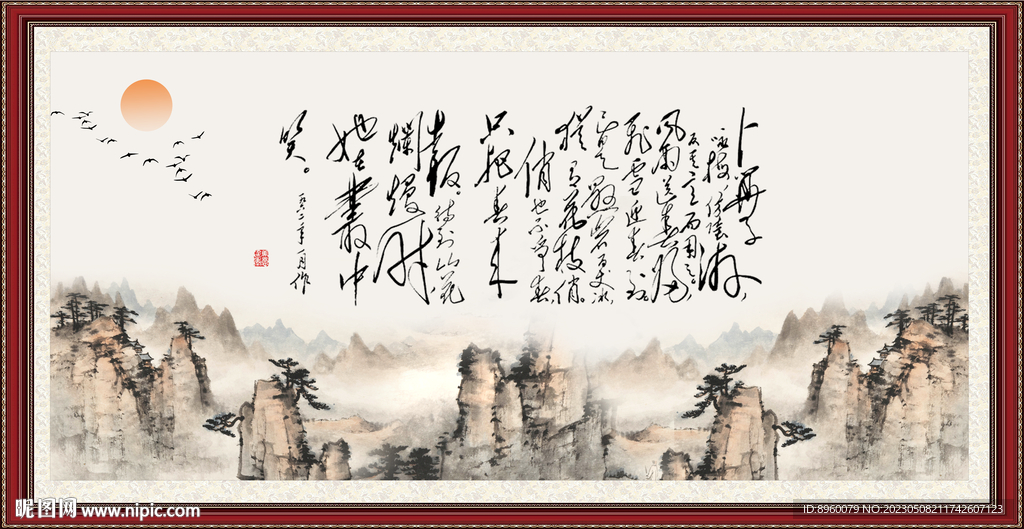 卜算子
咏梅,依陆游,
反其意而用之。
風雨送春歸,
飛雪迎春到。
已是懸崖百丈冰,
猶有花枝俏。
俏也不争春,
只把春来
報。待到山花
爛熳時,
她在叢中
笑。
昵图网 www.nipic.com
ID:8960079 NO:20230508211742607123